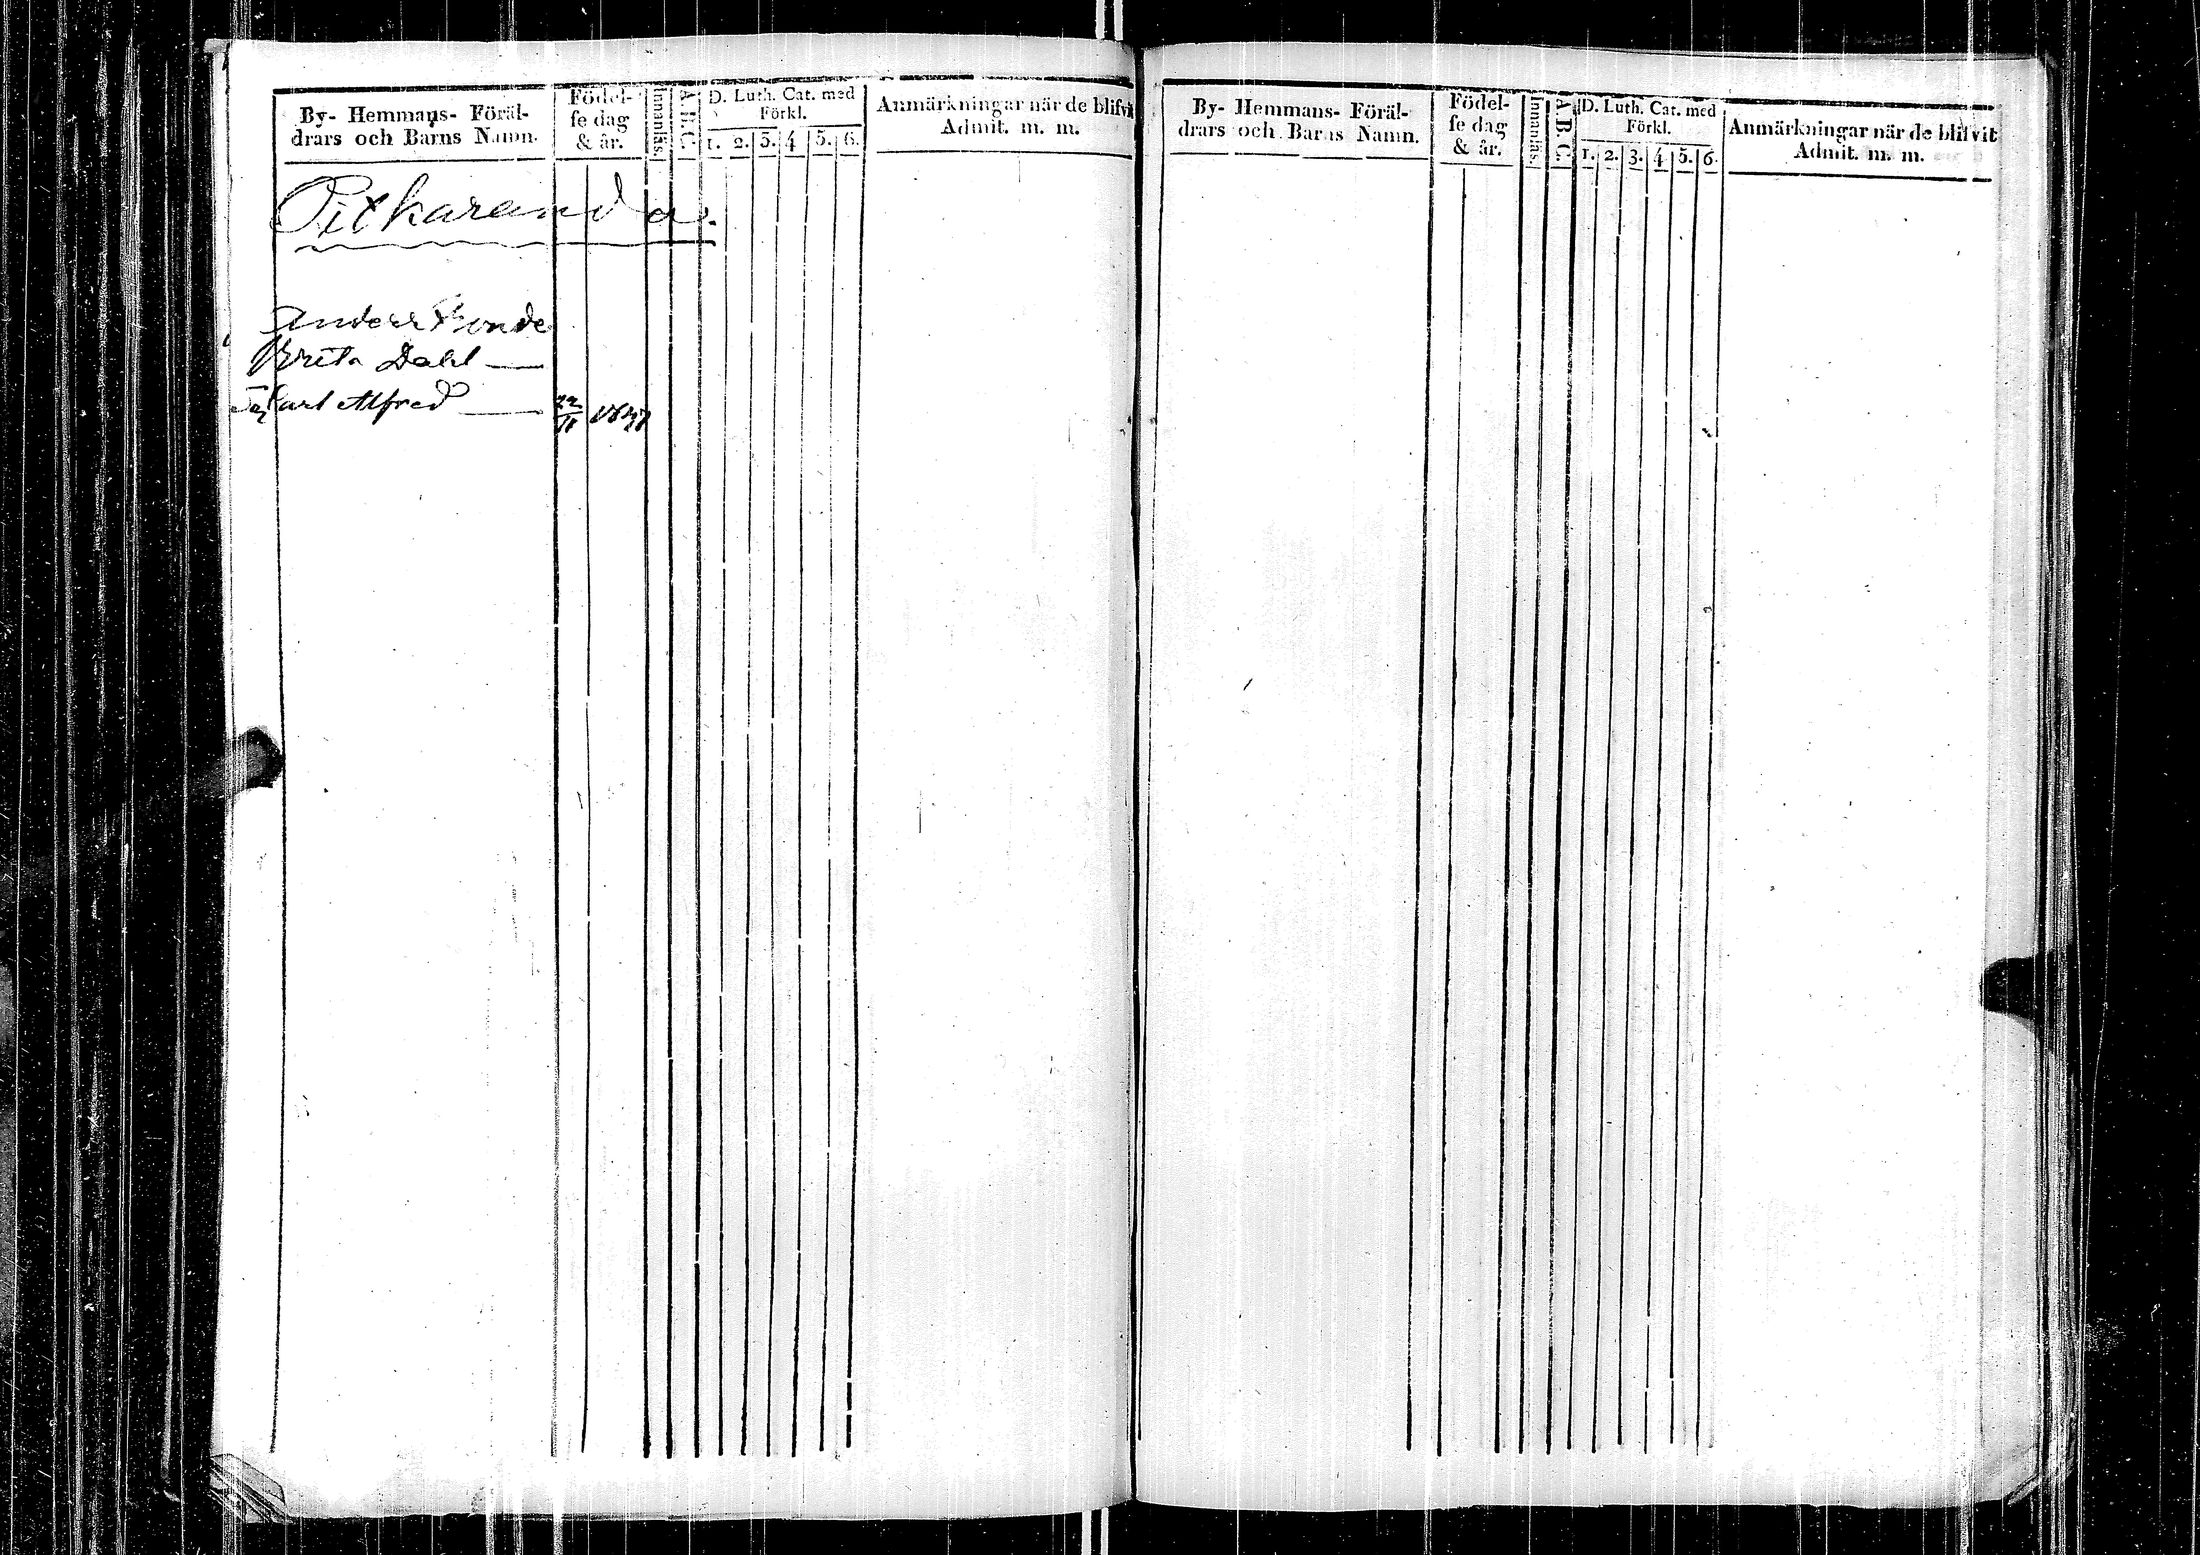 By- Hemmans- Föräl-
drars och Barns Namn.
Födel-
se dag
& år.
Innanläs.
A. B. C.
D. Luth. Cat. med
Förkl.
1. 2. 3. 4 5. 6.
Anmärkningar när de blifvit
Admit. m. m.
Pitkaranda.
Anders
Brita Dahl
Carl Alfred
By- Hemmans- Föräl-
drars och Barns Namn.
Födel-
se dag
& år.
Innanläs.
A. B. C.
D. Luth. Cat. med
Förkl.
1. 2. 3. 4 5. 6.
Anmärkningar när de blifvit
Admit. m. m.